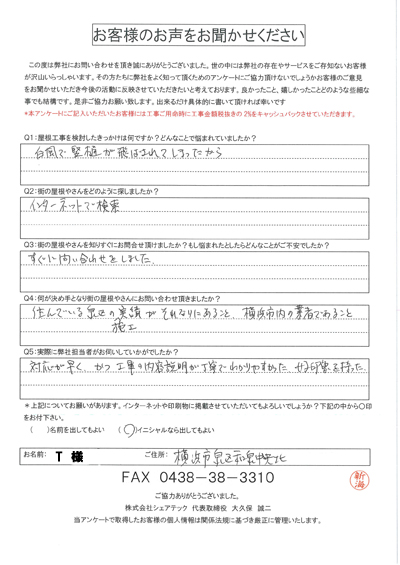 お客様のお声をお聞かせください
この度は弊社にお問い合わせを頂き誠にありがとうございました。世の中には弊社の存在やサービスをご存知ないお客様
が沢山いらっしゃいます。その方たちに弊社をよく知って頂くためのアンケートにご協力頂けないでしょうかお客様のご意見
をお聞かせいただき今後の活動に反映させていただきたいと考えております。良かったこと、嬉しかったことどのような些細な
事でも結構です。是非ご協力お願い致します。出来るだけ具体的に書いて頂ければ幸いです
*本アンケートにご記入いただいたお客様には工事ご用命時に工事金額税抜きの 2%をキャッシュバックさせていただきます。
Q1:屋根工事を検討したきっかけは何ですか?どんなことで悩まれていましたか?
台風で竪樋が飛ばされてしまったから
Q2:街の屋根やさんをどのように探しましたか?
インターネットで検索
Q3:街の屋根やさんを知りすぐにお問合せ頂けましたか?もし悩まれたとしたらどんなことがご不安でしたか?
すぐに問い合わせをしました。
Q4:何が決め手となり街の屋根やさんにお問い合わせ頂きましたか?
住んでいる泉区の実績がそれなりにあること、横浜市内の業者であること
施工
Q5:実際に弊社担当者がお伺いしていかがでしたか?
対応が早く、かつ工事の内容説明が丁寧でわかりやすかった。好印象を持った。
*上記についてお願いがあります。インターネットや印刷物に掲載させていただいてもよろしいでしょうか?下記の中から〇印
をお付け下さい。
( )名前を出してもよい (〇)イニシャルなら出してもよい
お名前: T 様 ご住所: 横浜市泉区和泉中央北
FAX 0438-38-3310
新海
ご協力ありがとうございました。
株式会社シェアテック 代表取締役 大久保 誠二
当アンケートで取得したお客様の個人情報は関係法規に基づき厳正に管理いたします。